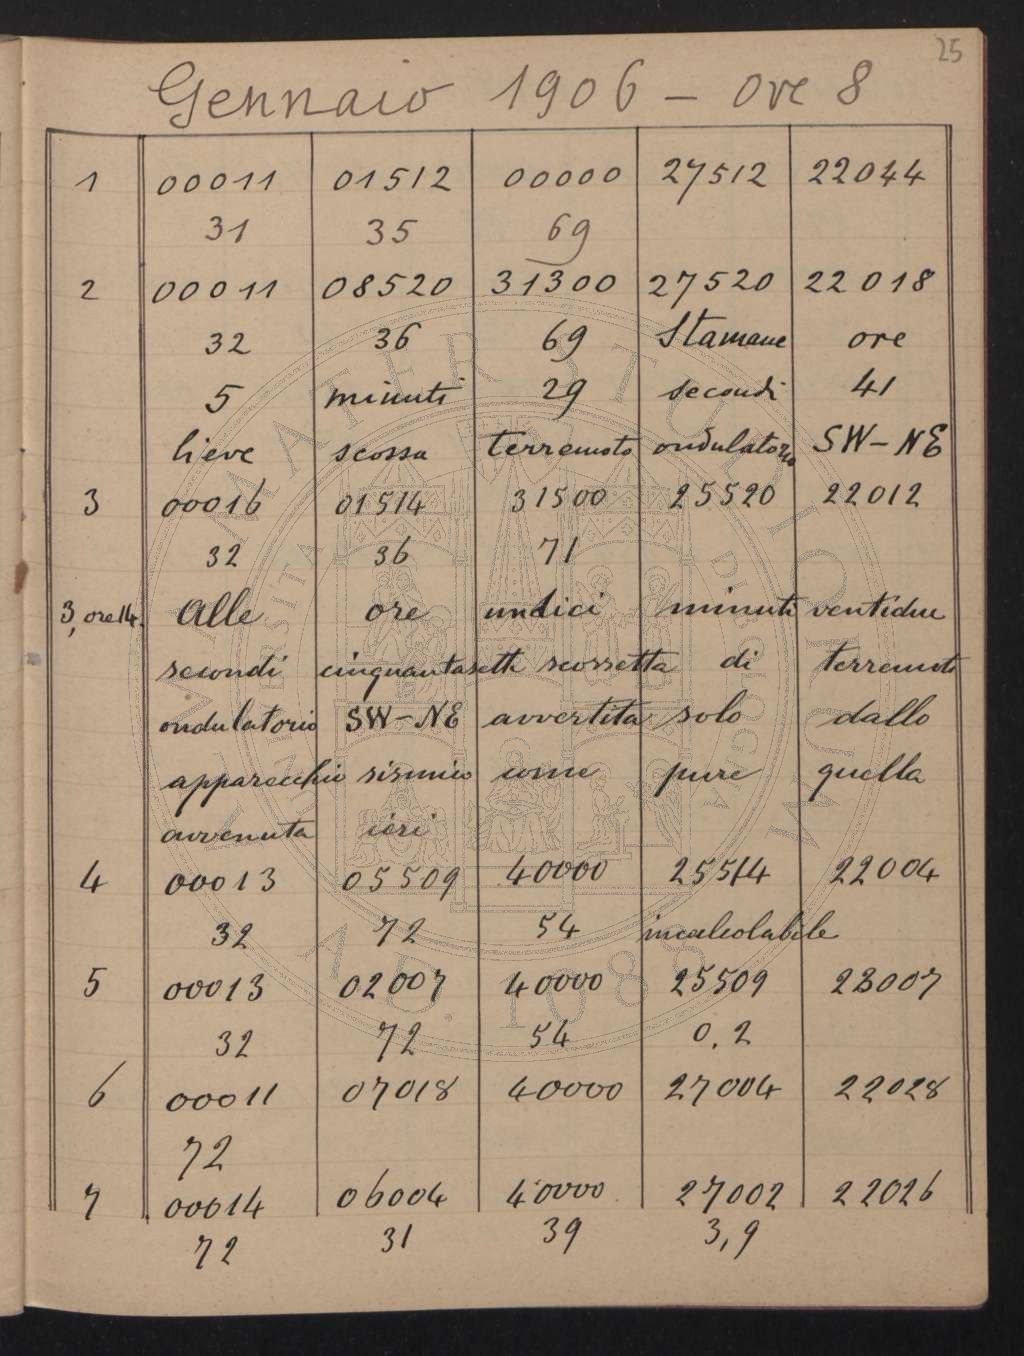 25
Gennaio 1906 - ore 8
1 00011 01512 00000 27512 22044
31 35 69
2 00011 08520 31300 27520 22018
32 36 69 Stamane ore
5 minuti 29 secondi 41
lieve scossa terremoto ondulatorio SW-NE
3 00016 01514 31500 25520 22012
32 36 71
3, ore 14. Alle ore undici minuti ventidue
secondi cinquantasette scossetta di terremoto
ondulatorio SW-NE avvertita solo dallo
apparecchio sismico come pure quella
avvenuta ieri
4 00013 05509 40000 25514 22004
32 72 54 incalcolabile
5 00013 02007 40000 25509 23007
32 72 54 0,2
6 00011 07018 40000 27004 22028
72
7 00014 06004 40000 27002 22026
72 31 39 3,9